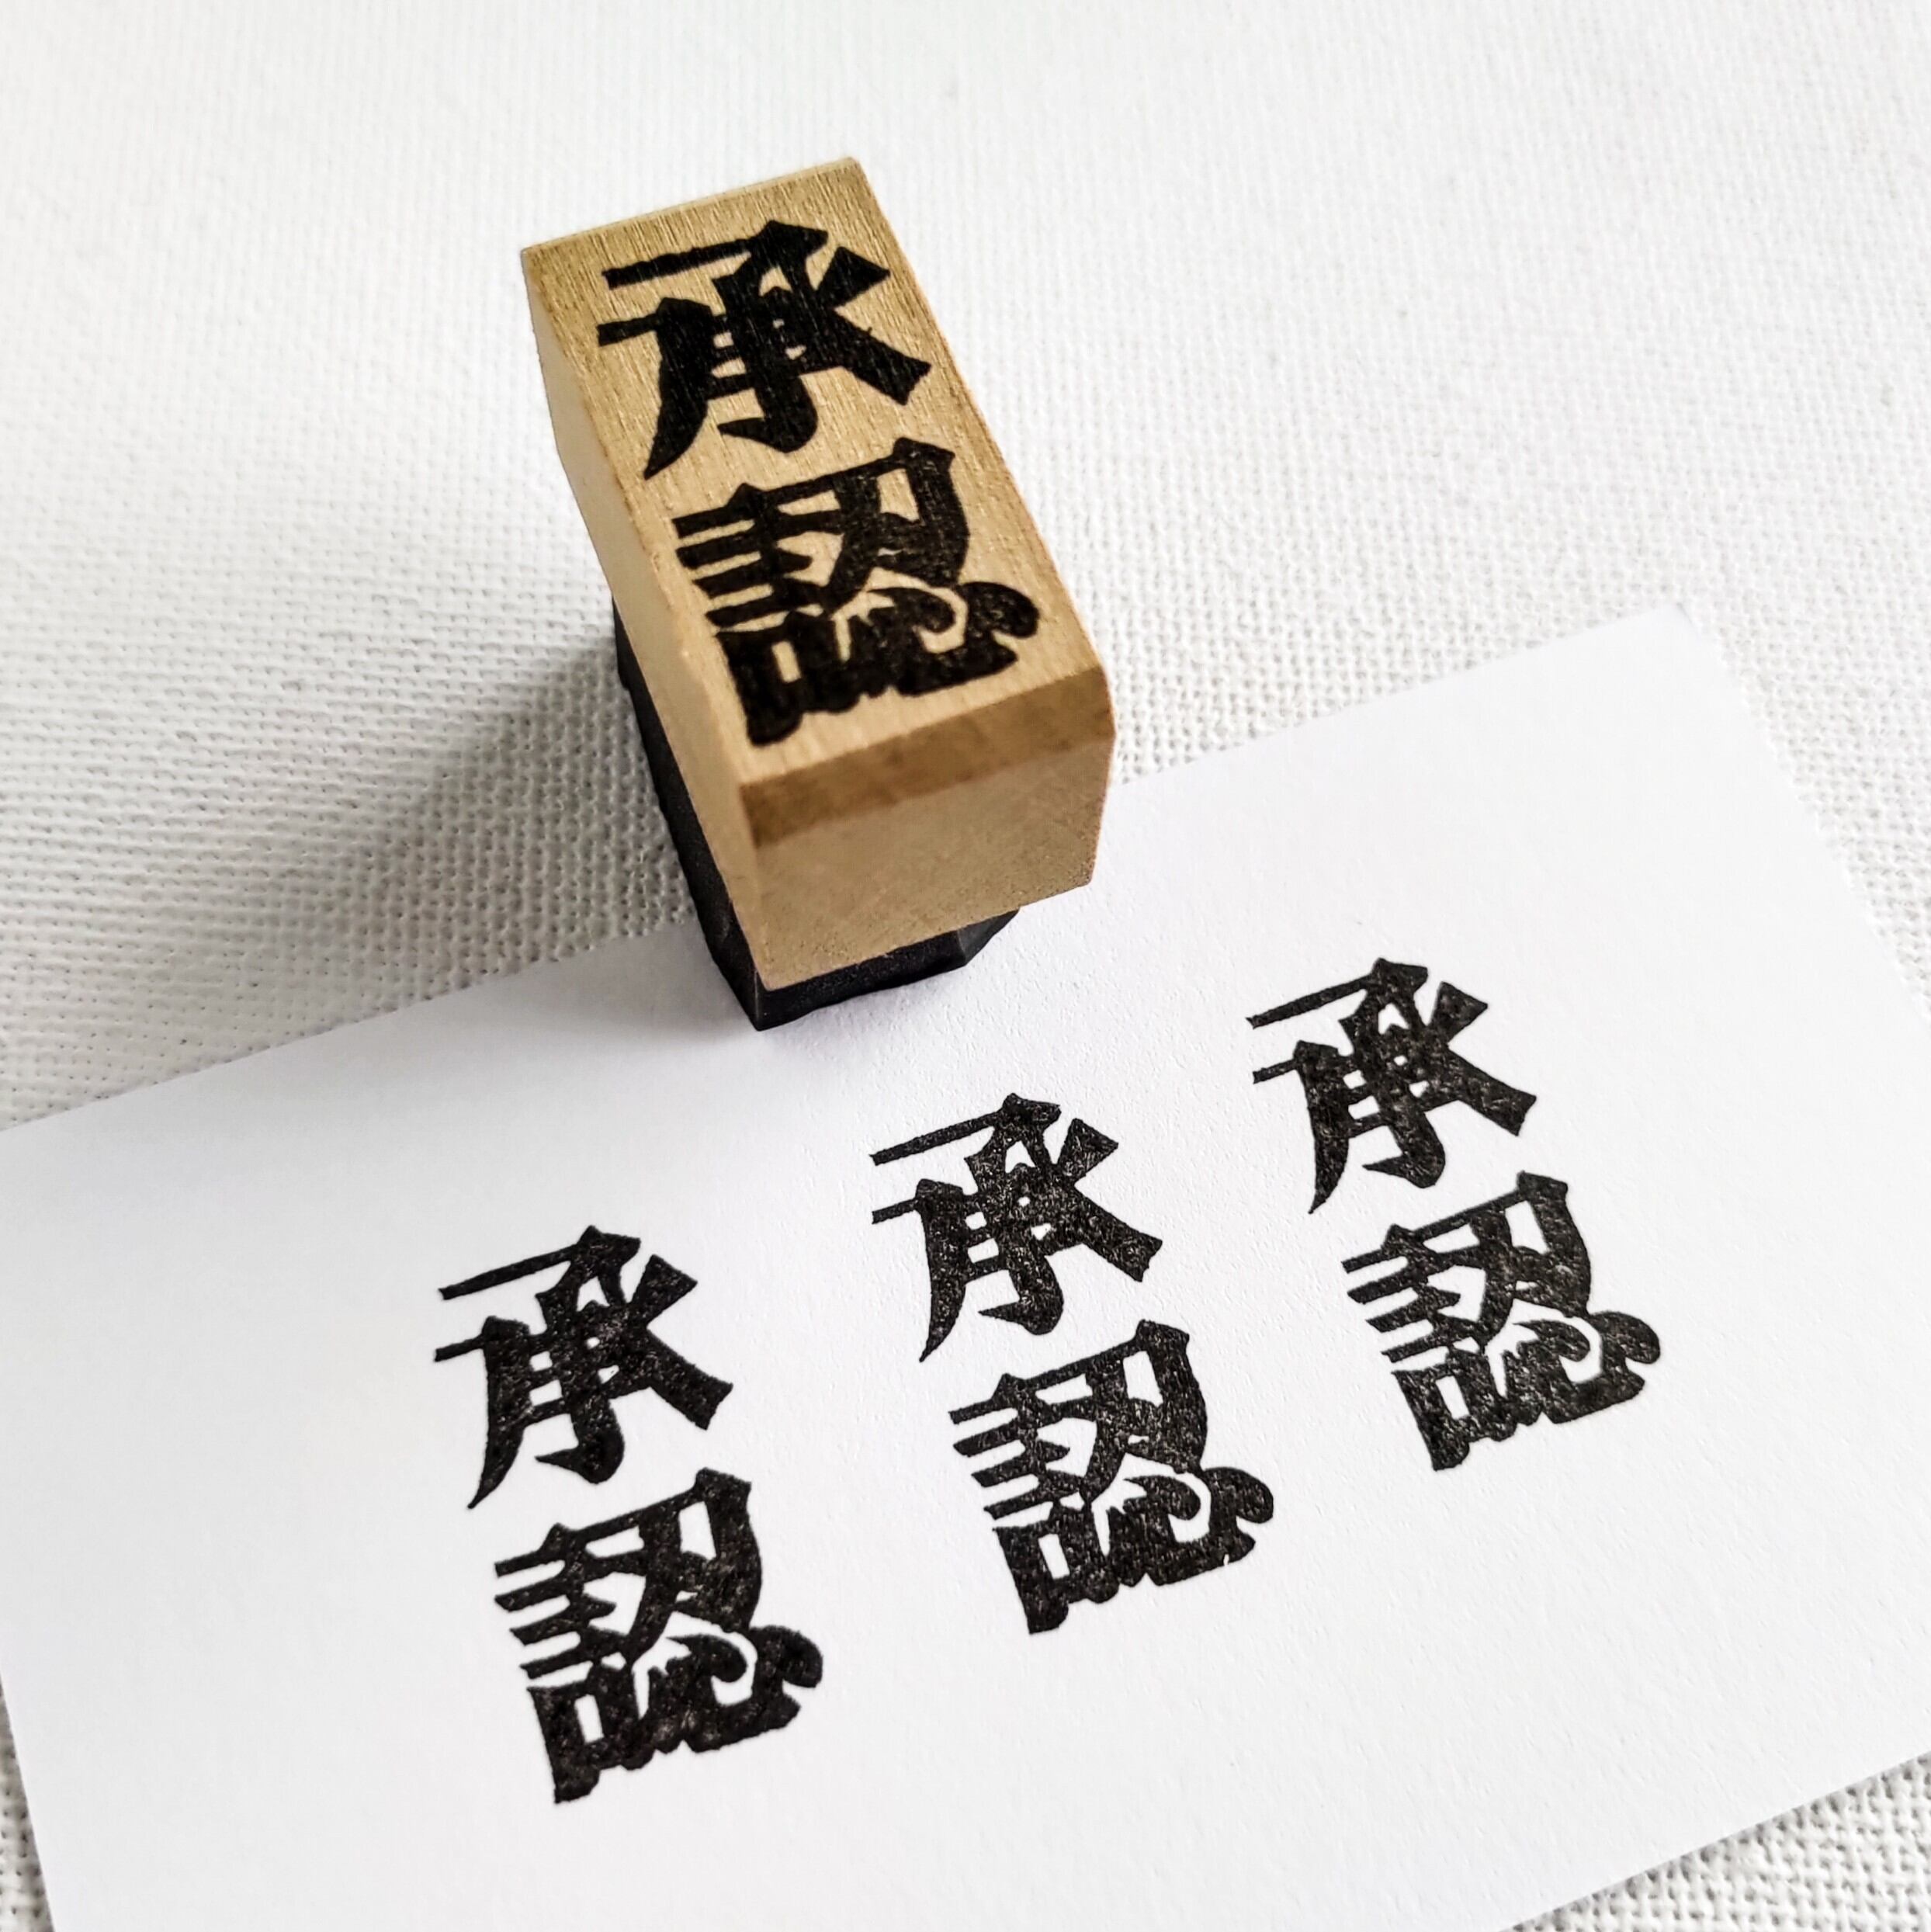 承認
承認
承認
承認